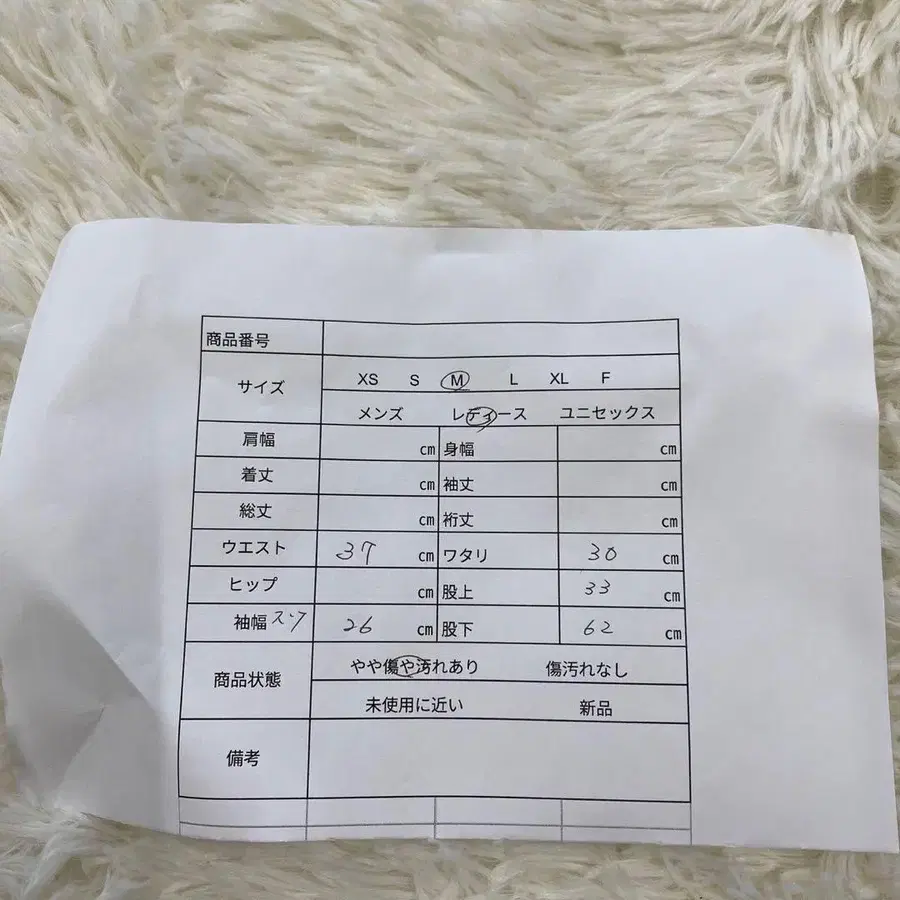 商品番号
サイズ XS S M L XL F
メンズ レディース ユニセックス
肩幅 cm 身幅 cm
着丈 cm 袖丈 cm
総丈 cm 裄丈 cm
ウエスト 37 cm ワタリ 30 cm
ヒップ cm 股上 33 cm
袖幅 スソ 26 cm 股下 62 cm
商品状態 やや傷や汚れあり 傷汚れなし
未使用に近い 新品
備考